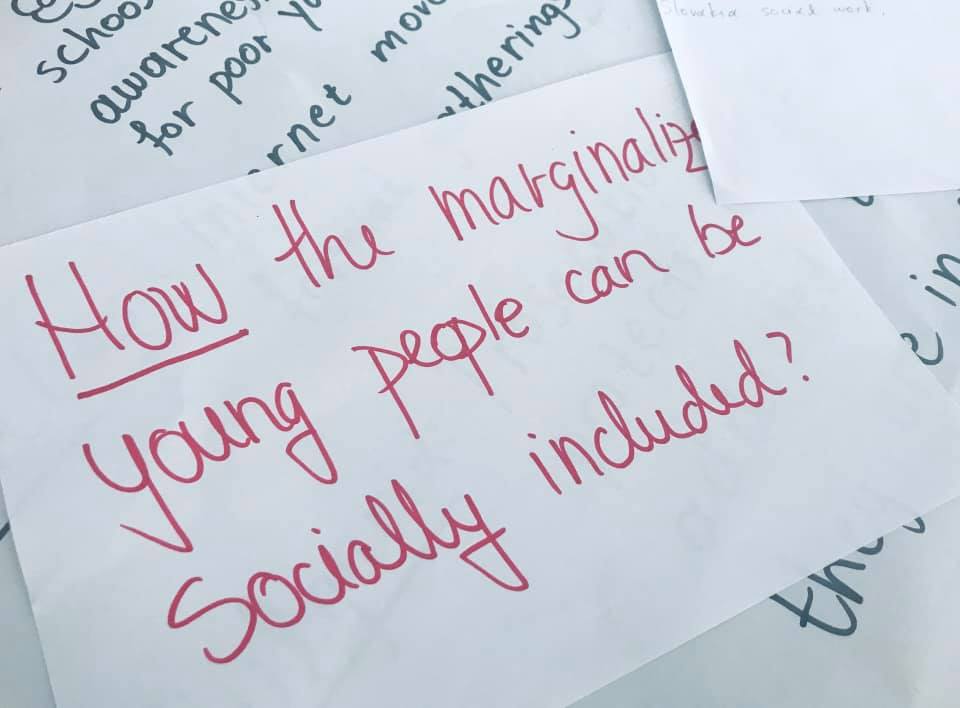 schoo
awarenes
for poor yo
ernet move
atherings
Slovakia social work.
How the marginalize
young people can be
socially included?
e in
the